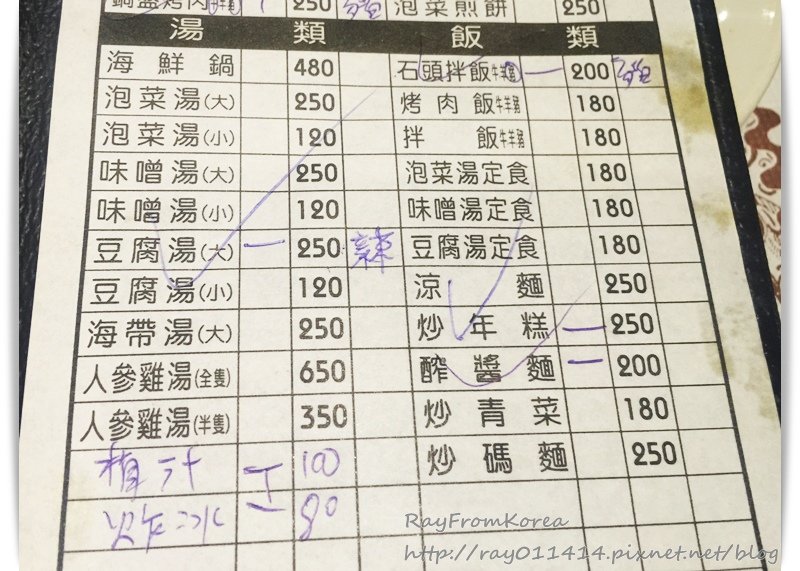 250 泡菜煎餅 250
湯 類 飯 類
海鮮鍋 480 石頭拌飯牛羊豬 一 200
泡菜湯(大) 250 烤肉飯牛羊豬 180
泡菜湯(小) 120 拌飯牛羊豬 180
味噌湯(大) 250 泡菜湯定食 180
味噌湯(小) 120 味噌湯定食 180
豆腐湯(大) 一 250 辣 豆腐湯定食 180
豆腐湯(小) 120 涼麵 250
海帶湯(大) 250 炒年糕 一 250
人參雞湯(全隻) 650 醡醬麵 一 200
人參雞湯(半隻) 350 炒青菜 180
100 炒碼麵 250
冰 一 80
RayFromKorea
http://ray011414.pixnet.net/blog